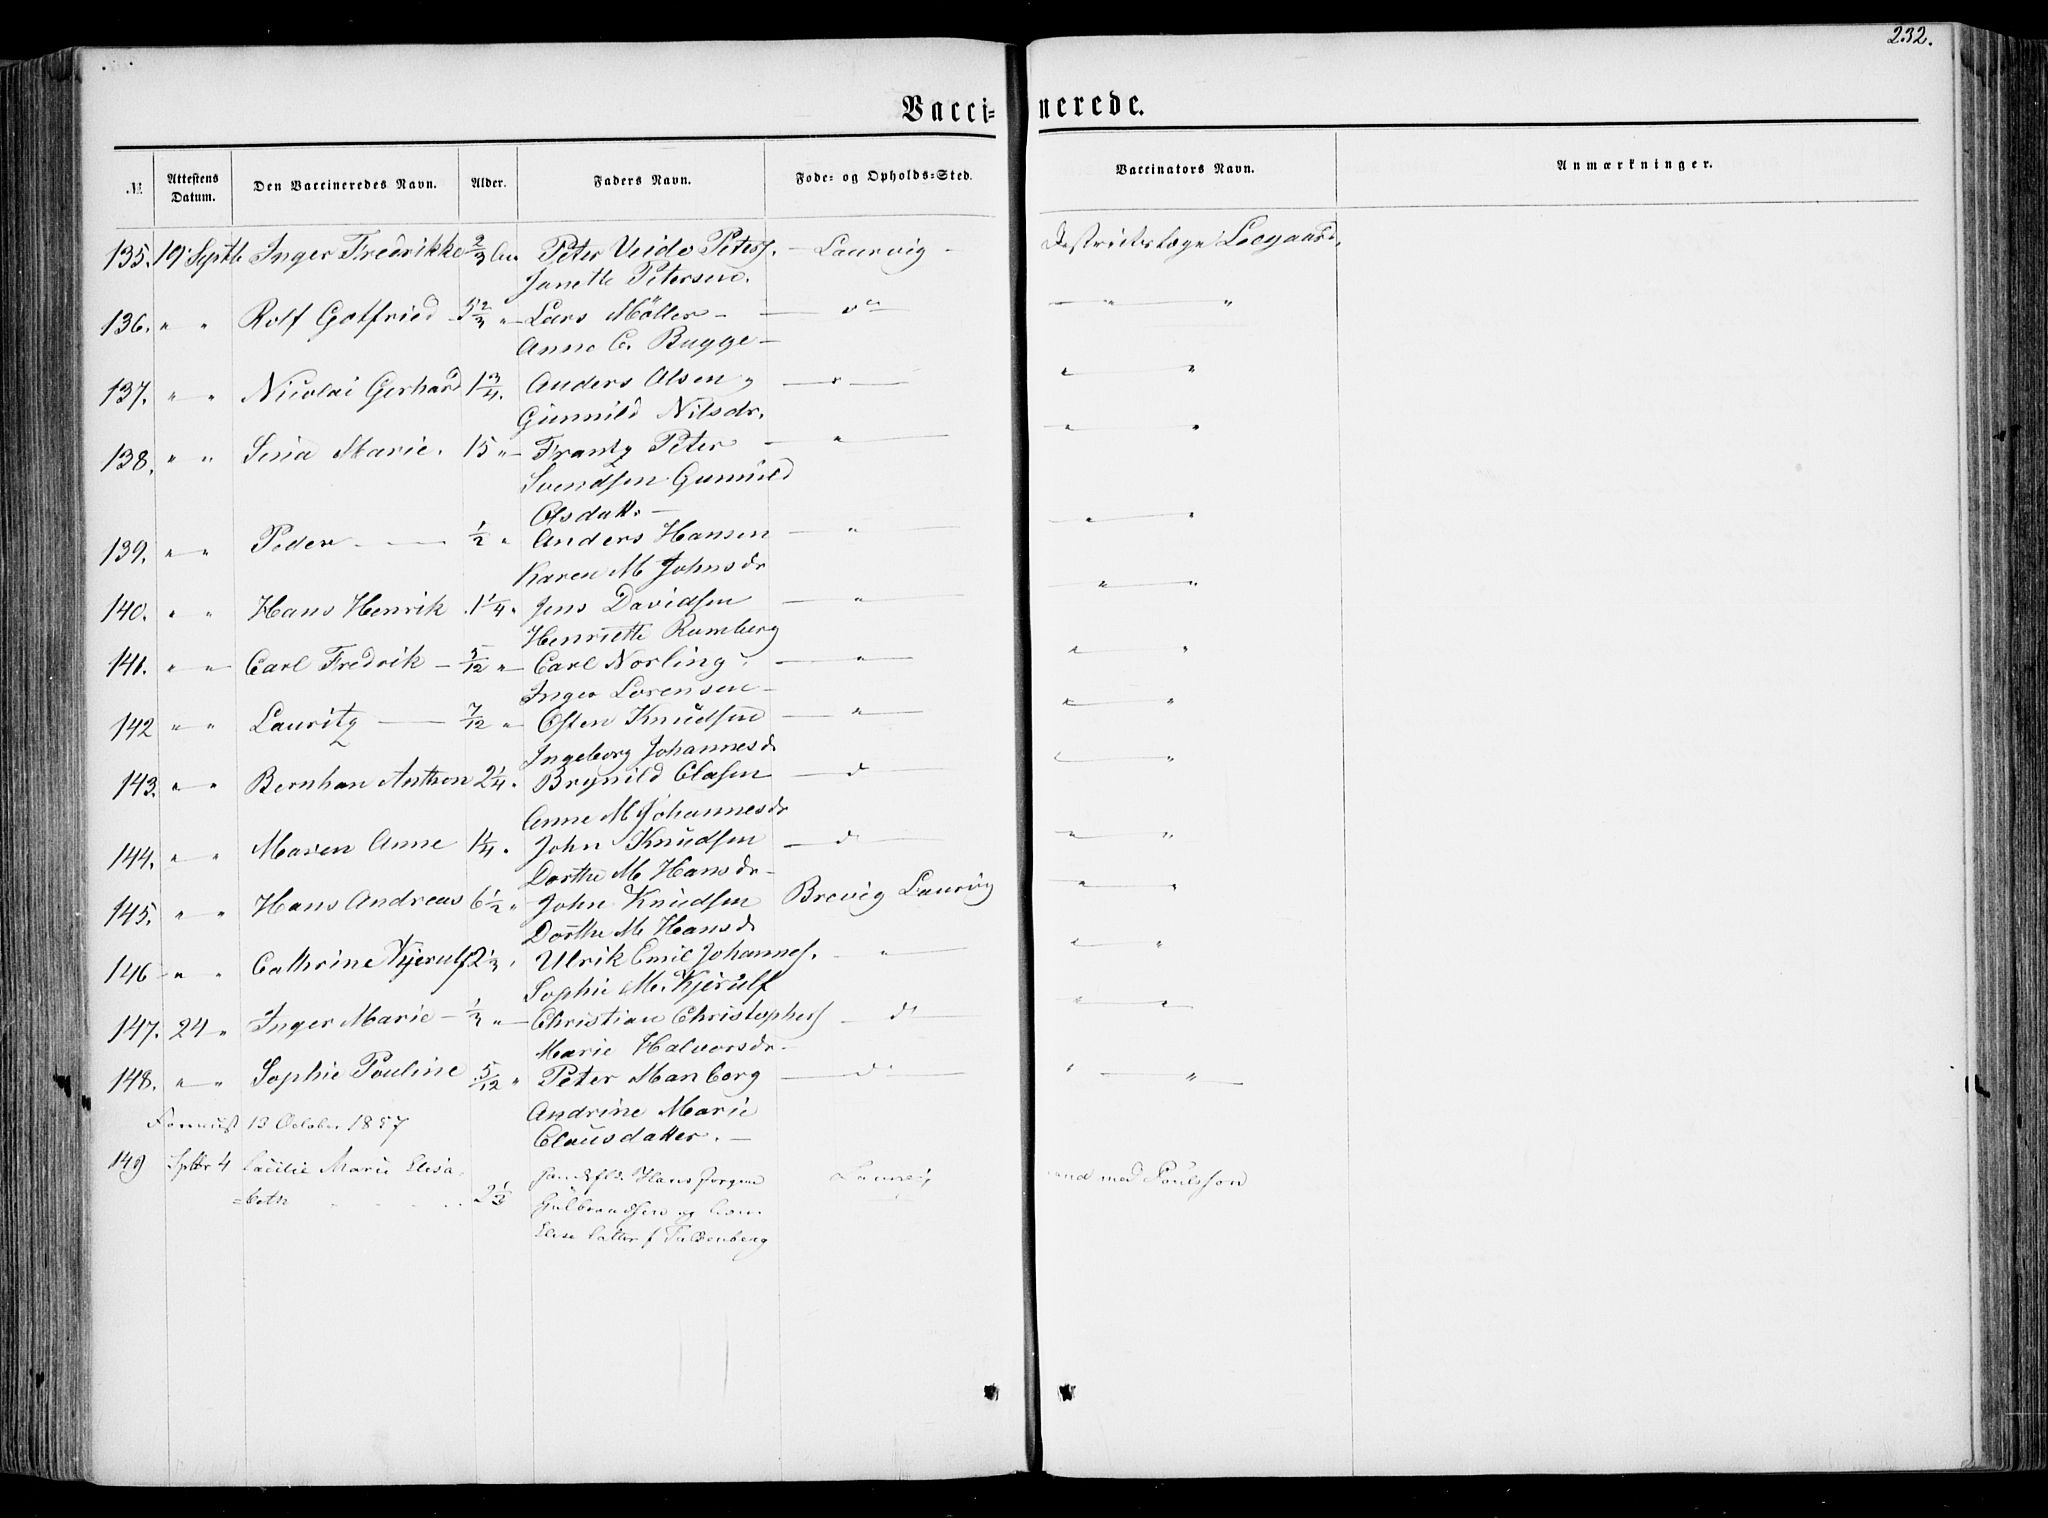 232.
Vaccinerede.
№ Attestens Datum. Den Vaccineredes Navn. Alder. Faders Navn. Føde- og Opholds-Sted. Vaccinators Navn. Anmærkninger.
135. 19 Septb Inger Fredrikke 2/3 Peter Peters. — Laurvig —
Janette Petersen.
136. " " Rolf Gotfried 5 2/3 " Lars Möller — — do — — " — "
Anne C. Bugge —
137. " " Nicolai Gerhard 1 3/4. Anders Olsen — " — " — "
Gunnild Nilsdr.
138. " " Marie. 15 " Frantz Peter — " — " — "
Svendsen Gunnild
Olsdattr. —
139. " " Peder — 1/2 " Anders Hansen — " — " — "
Karen M Johnsdr
140. " " Hans Henrik 1 1/4 " Jens Davidsen — " — " — "
Henriette Ramberg
141. " " Carl Fredrik — 5/12 " Carl Norling — " — " — "
Inger Lorensen —
142 " " Lauritz — 7/12 " Osten Knudsen — " — " — "
Ingeborg Johannesd.
143. " " Bernhan Anthon 2 1/4 . Brynild Olasen — d — " — "
Anne M Johannesdr
144. " " Maren Anne 1 1/4 . John Knudsen — d — " — "
Dorthe M Hansdr —
145. " " Hans Andreas 6 1/2 " John Knudsen Brevig Laurvig " — "
Dorthe M Hansd.
146 " " Cathrine Kjerulf 2 1/3 . Ulrik Emil Johannes. — " — " — "
Sophie M. Kjerulf
147. 24 " Inger Marie — 1/3 " Christian Christophers — do — " — "
Marie Halvorsdr.
148. " " Sophie Pouline 5/12 " Peter Manborg — d — " — "
Andrine Marie
13 October 1857
Clausdatter. —
149 Septbr 4 Cecilie Marie Elisa- Hans Jørgen med Poulsson
=beth 2 1/3 Gulbrandsen og
Elise